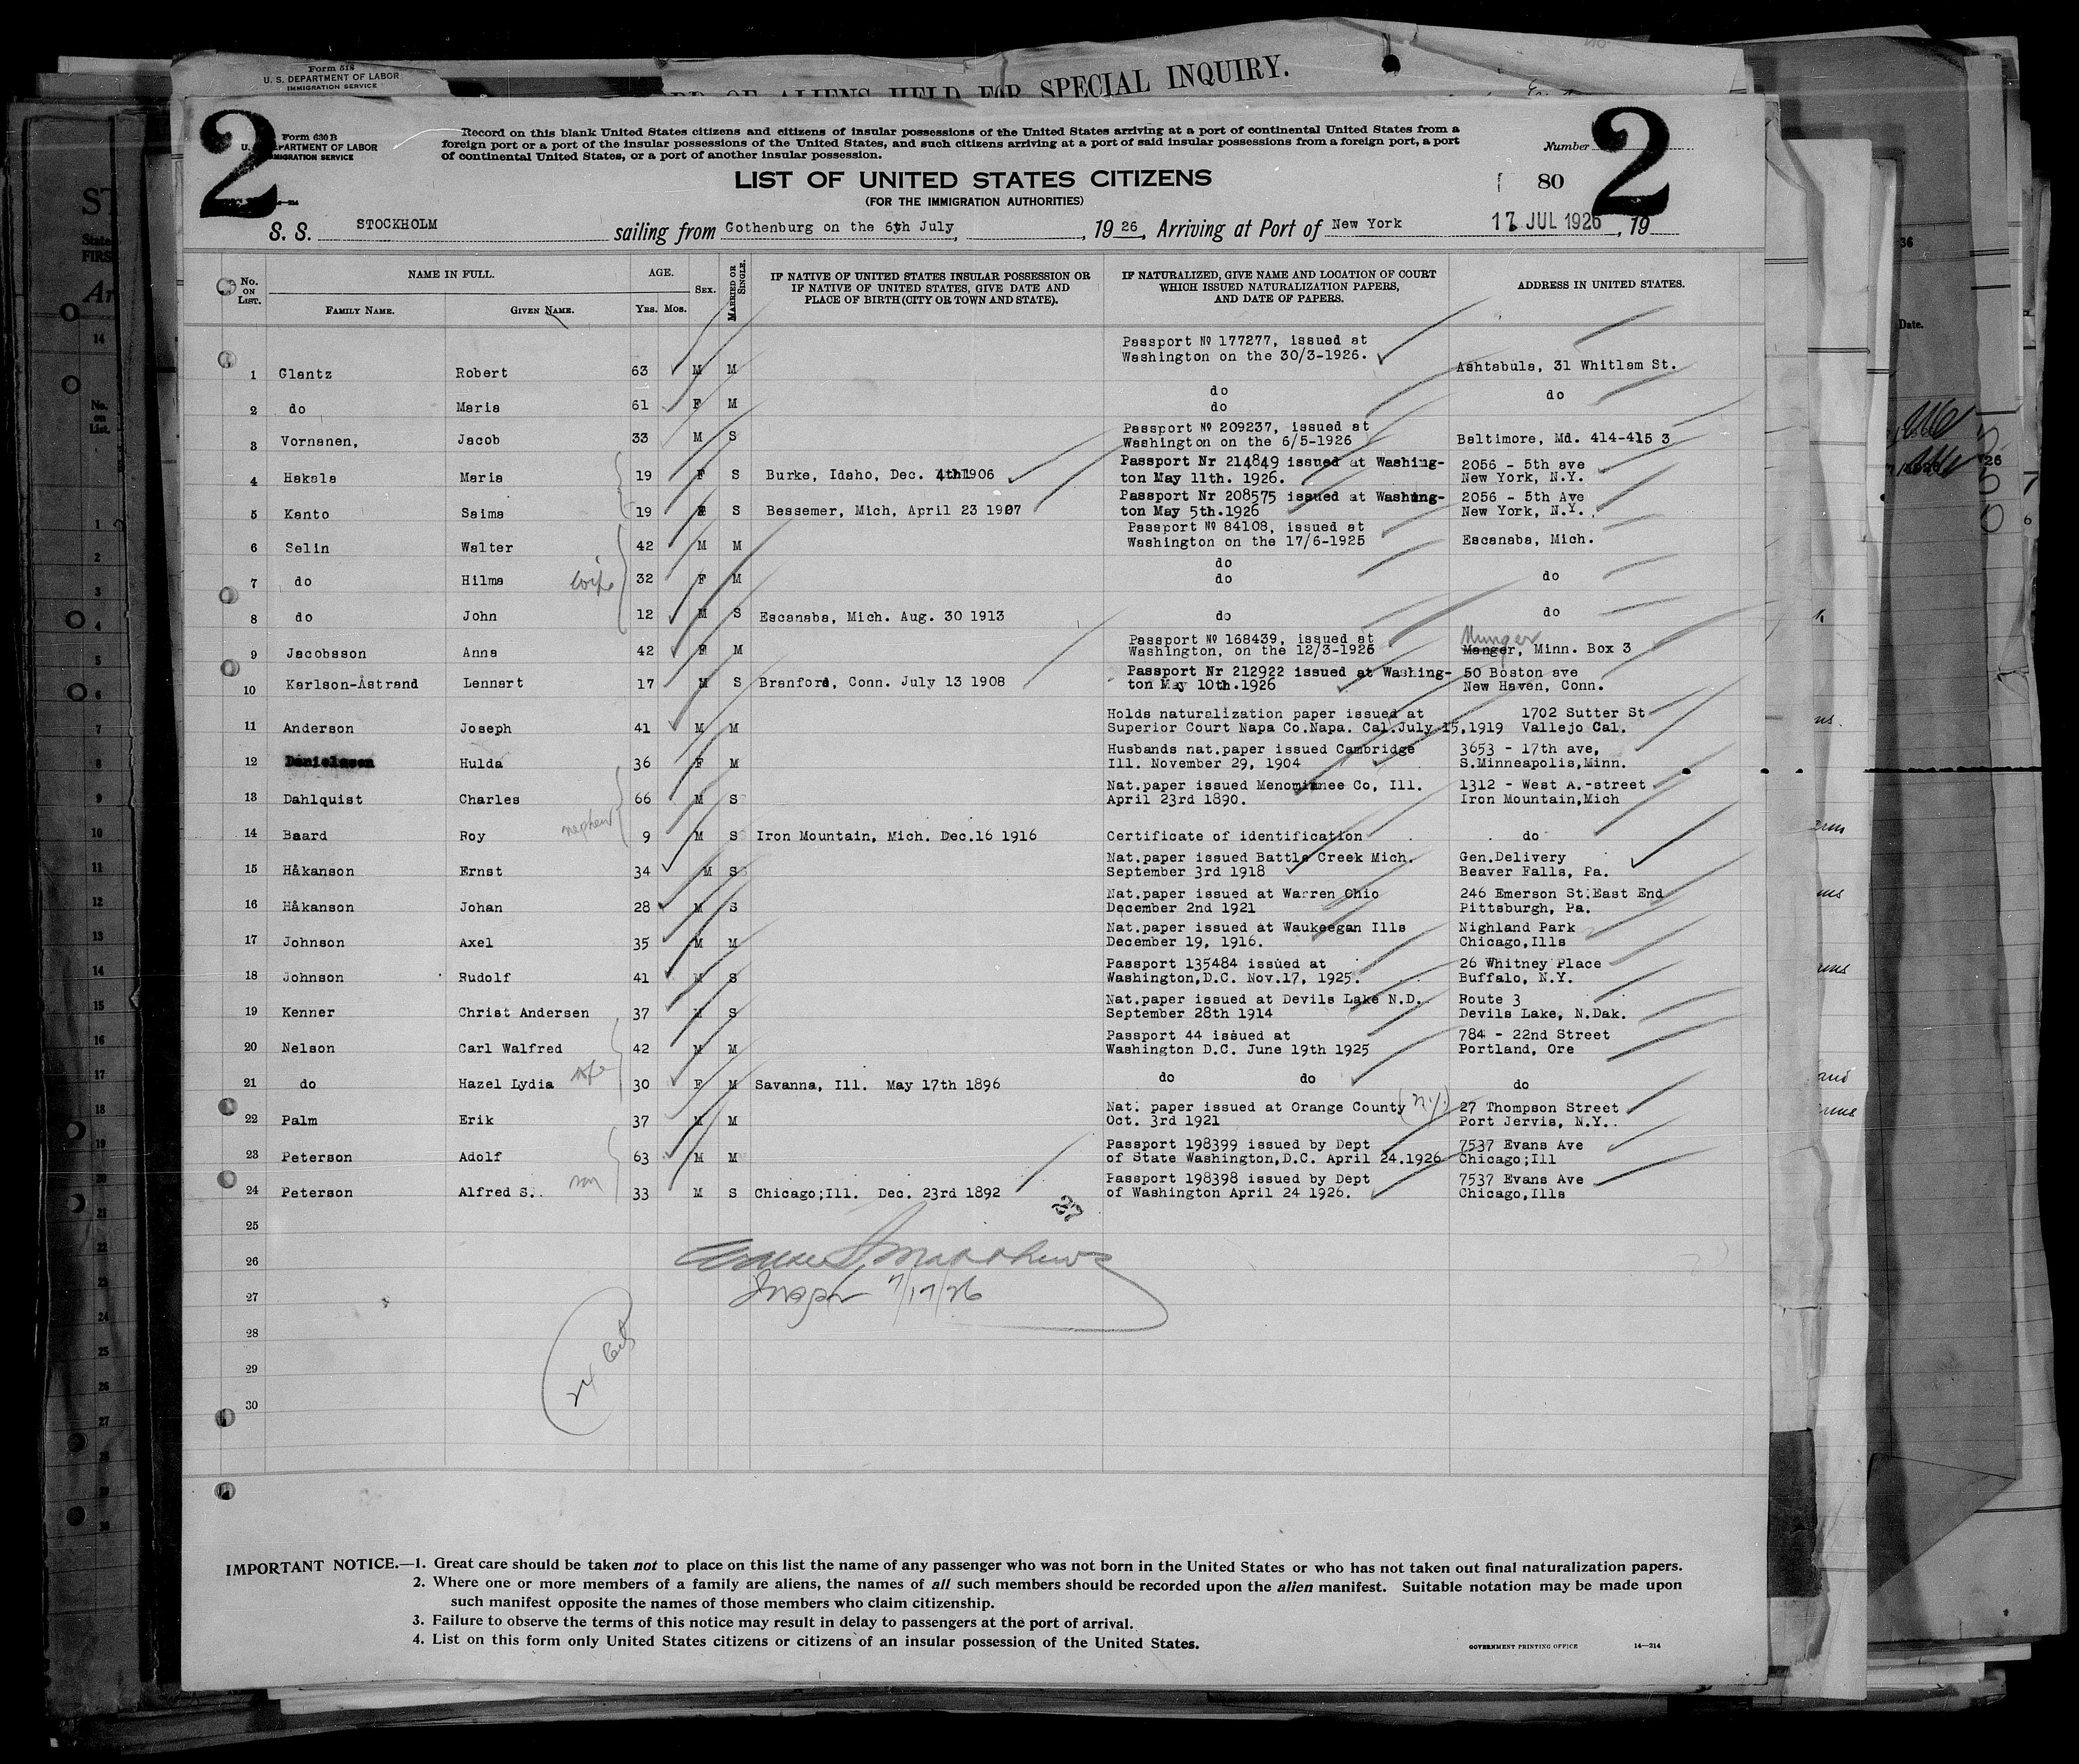 Form 518
U. S. DEPARTMENT OF LABOR
IMMIGRATION SERVICE
OF ALIENS HELD FOR SPECIAL INQUIRY.
2
2
Form 630 B
U. S. DEPARTMENT OF LABOR
IMMIGRATION SERVICE
Record on this blank United States citizens and citizens of insular possessions of the United States arriving at a port of continental United States from a
foreign port or a port of the insular possessions of the United States, and such citizens arriving at a port of said insular possessions from a foreign port, a port
of continental United States, or a port of another insular possession.
Number
LIST OF UNITED STATES CITIZENS
80
(FOR THE IMMIGRATION AUTHORITIES)
S. S. STOCKHOLM sailing from Gothenburg on the 6th July, , 19 26, Arriving at Port of New York 17 JUL 1926, 19
No. ON LIST. NAME IN FULL. AGE. SEX. MARRIED OR SINGLE. IF NATIVE OF UNITED STATES INSULAR POSSESSION OR IF NATIVE OF UNITED STATES, GIVE DATE AND PLACE OF BIRTH (CITY OR TOWN AND STATE). IF NATURALIZED, GIVE NAME AND LOCATION OF COURT WHICH ISSUED NATURALIZATION PAPERS, AND DATE OF PAPERS. ADDRESS IN UNITED STATES.
FAMILY NAME. GIVEN NAME. Yrs. Mos.
Passport No 177277, issued at
Washington on the 30/3-1926.
1 Glantz Robert 63 M M Ashtabula, 31 Whitlam St.
do
2 do Maria 61 F M do do
Passport No 209237, issued at
3 Vornanen, Jacob 33 M S Washington on the 6/5-1926 Baltimore, Md. 414-415 3
Passport Nr 214849 issued at Washing- 2056 - 5th ave
4 Hakala Maria 19 F S Burke, Idaho, Dec. 4th 1906 ton May 11th. 1926. New York, N.Y.
Passport Nr 208575 issued at Washing- 2056 - 5th Ave
5 Kanto Saima 19 F S Bessemer, Mich, April 23 1907 ton May 5th.1926 New York, N.Y.
Passport No 84108, issued at
6 Selin Walter 42 M M Washington on the 17/6-1925 Escanaba, Mich.
do
7 do Hilma wife 32 F M do do
8 do John 12 M S Escanaba, Mich. Aug. 30 1913 do do
Passport No 168439, issued at Munger
9 Jacobsson Anna 42 F M Washington, on the 12/3-1926 Manger, Minn. Box 3
Passport Nr 212922 issued at Washing- 50 Boston ave
10 Karlson-Åstrand Lennart 17 M S Branford, Conn. July 13 1908 ton May 10th.1926 New Haven, Conn.
Holds naturalization paper issued at 1702 Sutter St
11 Anderson Joseph 41 M M Superior Court Napa Co.Napa. Cal.July 15,1919 Vallejo Cal.
Husbands nat.paper issued Cambridge 3653 - 17th ave,
12 Danielsson Hulda 36 F M Ill. November 29, 1904 S.Minneapolis,Minn.
Nat.paper issued Menominnee Co, Ill. 1312 - West A.-street
13 Dahlquist Charles 66 M S April 23rd 1890. Iron Mountain,Mich
14 Baard Roy nephew 9 M S Iron Mountain, Mich. Dec.16 1916 Certificate of identification do
Nat.paper issued Battle Creek Mich. Gen.Delivery
15 Håkanson Ernst 34 M S September 3rd 1918 Beaver Falls, Pa.
Nat.paper issued at Warren Ohio 246 Emerson St.East End
16 Håkanson Johan 28 M S December 2nd 1921 Pittsburgh, Pa.
Nat.paper issued at Waukeegan Ills Nighland Park
17 Johnson Axel 35 M M December 19, 1916. Chicago,Ills
Passport 135484 issued at 26 Whitney Place
18 Johnson Rudolf 41 M S Washington,D.C. Nov.17, 1925. Buffalo, N.Y.
Nat.paper issued at Devils Lake N.D. Route 3
19 Kenner Christ Andersen 37 M S September 28th 1914 Devils Lake, N.Dak.
Passport 44 issued at 784 - 22nd Street
20 Nelson Carl Walfred 42 M M Washington D.C. June 19th 1925 Portland, Ore
21 do Hazel Lydia wife 30 F M Savanna, Ill. May 17th 1896 do do do
Nat. paper issued at Orange County (N.Y.) 27 Thompson Street
22 Palm Erik 37 M M Oct. 3rd 1921 Port Jervis, N.Y..
Passport 198399 issued by Dept 7537 Evans Ave
23 Peterson Adolf 63 M M of State Washington,D.C. April 24.1926 Chicago;Ill
Passport 198398 issued by Dept 7537 Evans Ave
24 Peterson Alfred S.. son 33 M S Chicago;Ill. Dec. 23rd 1892 of Washington April 24 1926. Chicago,Ills
25
26
27 Inspr 7/17/26
28
29
30
IMPORTANT NOTICE.—1. Great care should be taken not to place on this list the name of any passenger who was not born in the United States or who has not taken out final naturalization papers.
2. Where one or more members of a family are aliens, the names of all such members should be recorded upon the alien manifest. Suitable notation may be made upon
such manifest opposite the names of those who claim citizenship.
3. Failure to observe the terms of this notice may result in delay to passengers at the port of arrival.
4. List on this form only United States citizens or citizens of an insular possession of the United States.
GOVERNMENT PRINTING OFFICE 14—214